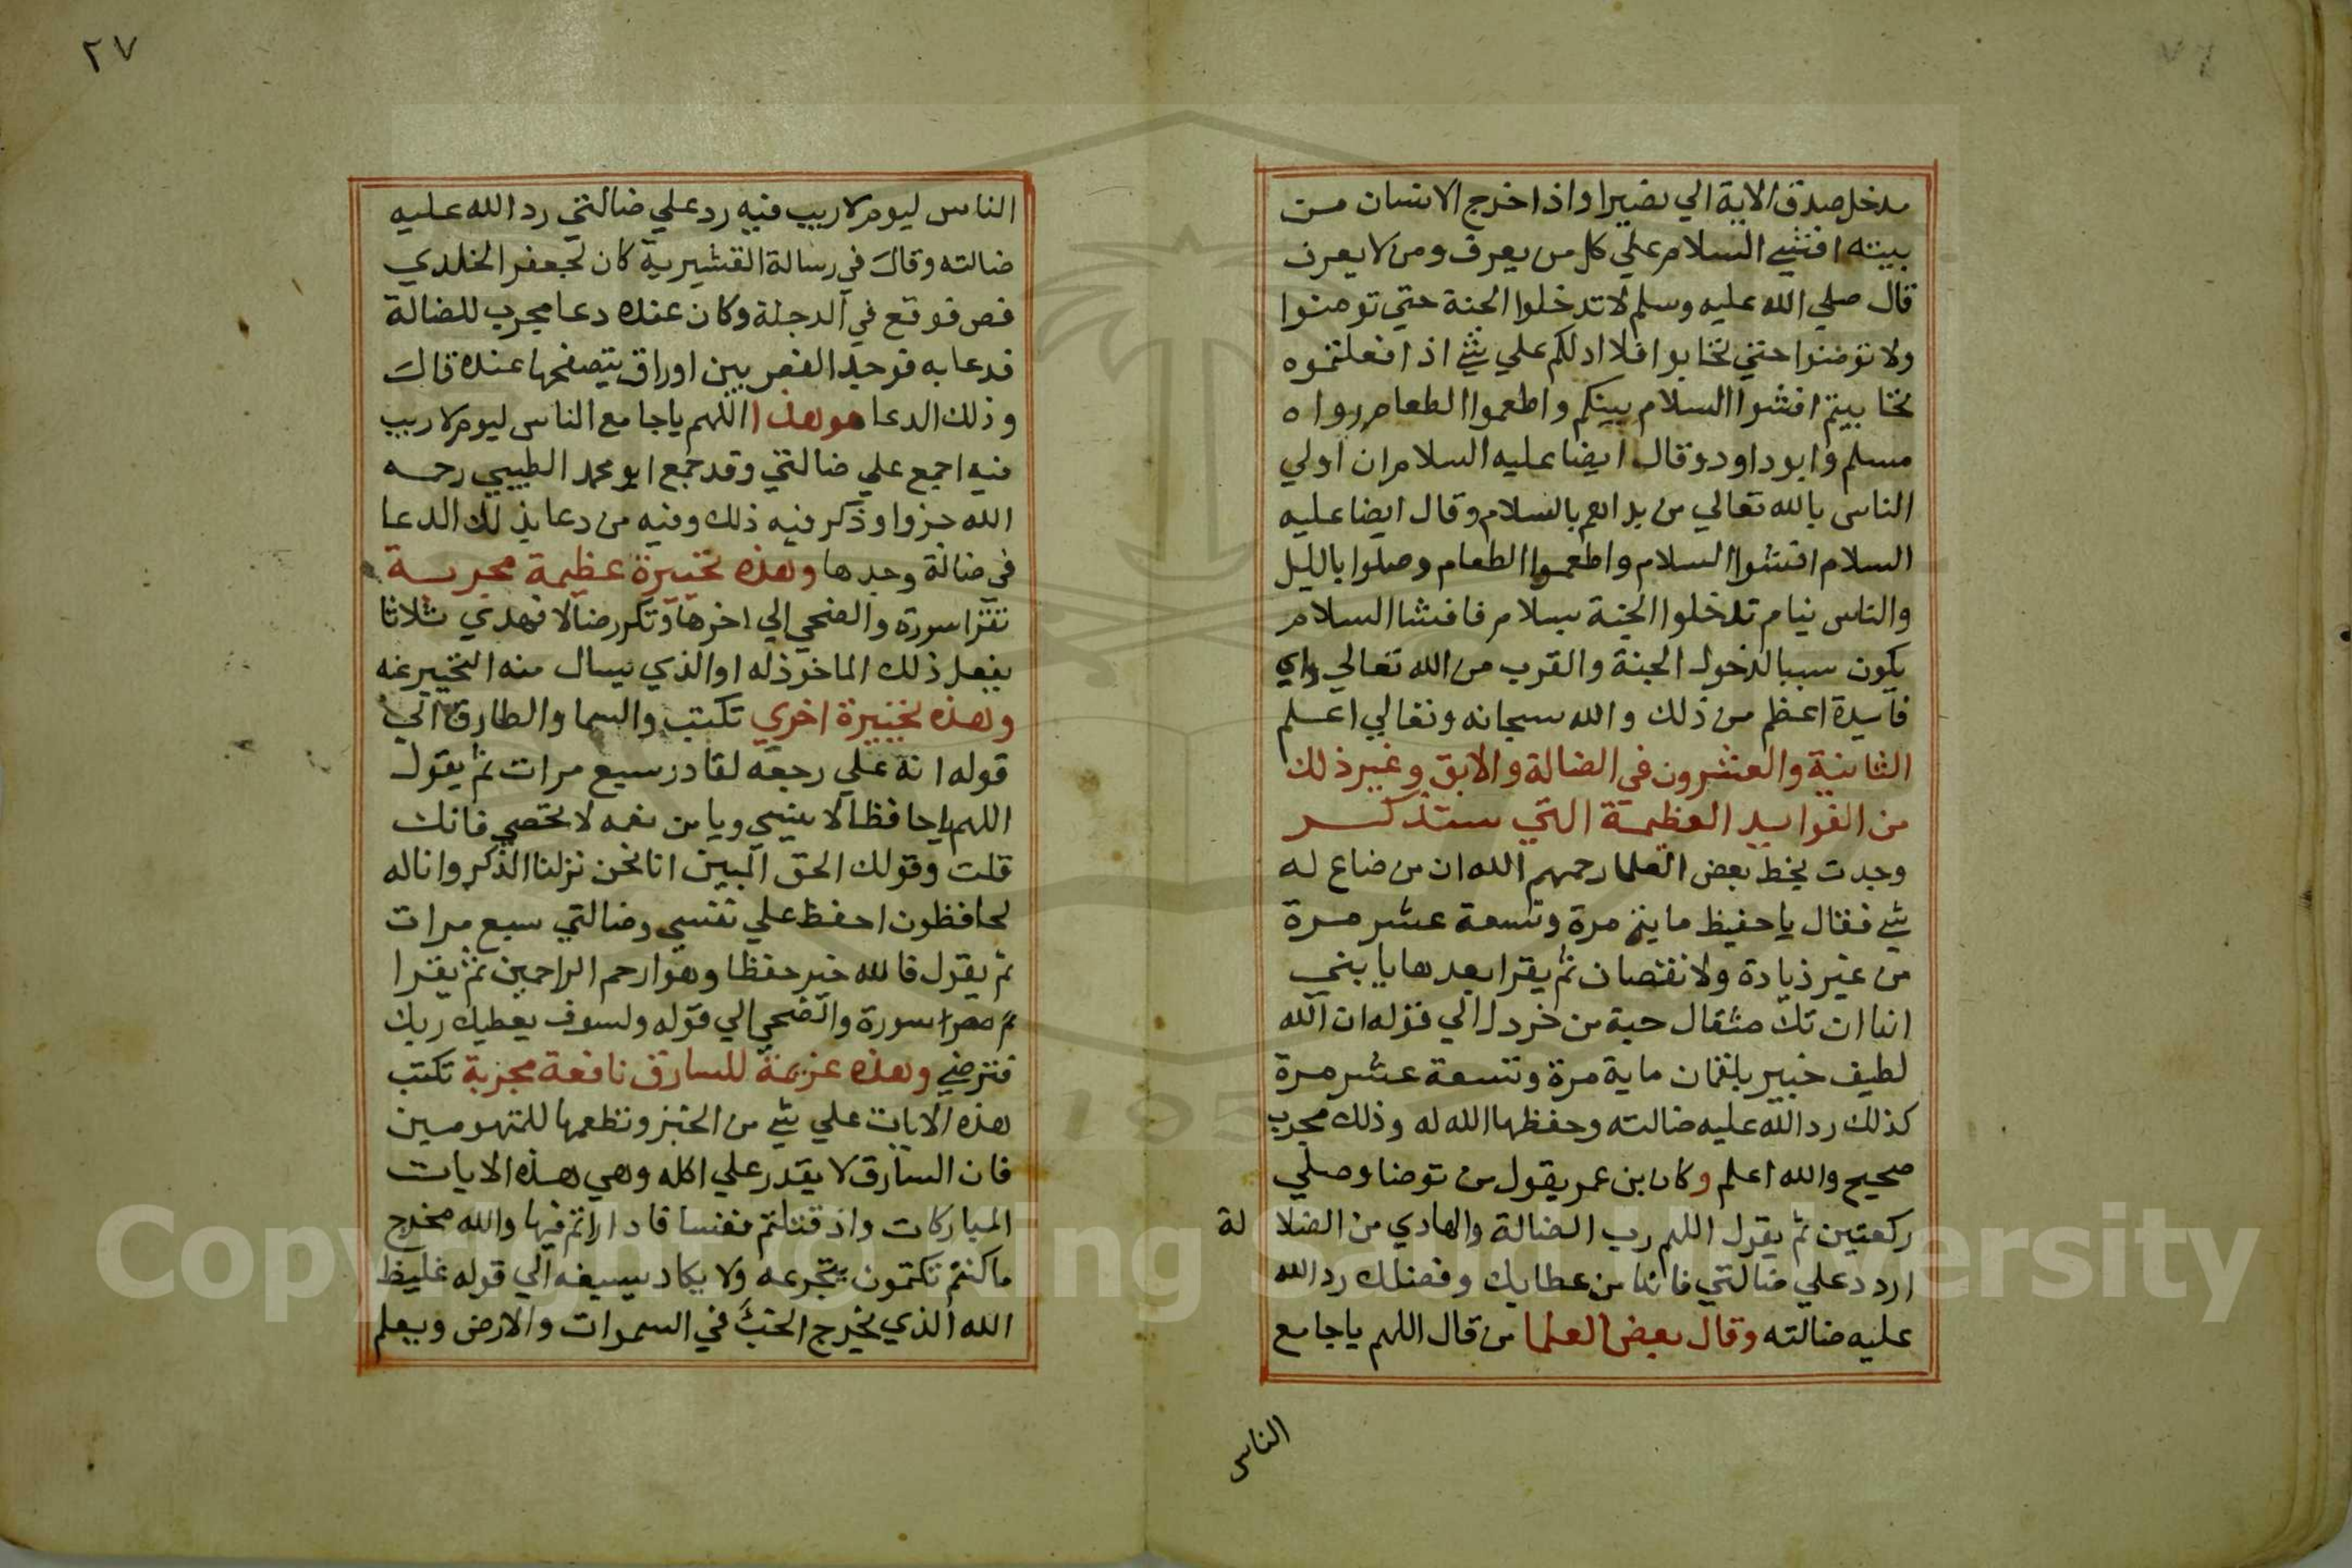 مدخل صدق الاية الي نصيرا واذا خرج الانسان من
بيته افشي السلام علي كل من يعرف ومن لا يعرف
قال صلي الله عليه وسلم لا تدخلوا الجنة حتي تومنوا
ولا تومنوا حتي تحابوا افلا ادلكم علي شي اذا فعلتموه
تحاببتم افشوا السلام بينكم واطعموا الطعام رواه
مسلم وابو داود وقال ايضا عليه السلام ان اولي
الناس بالله تعالي من بداهم بالسلام وقال ايضا عليه
السلام افشوا السلام واطعموا الطعام وصلوا بالليل
والناس نيام تدخلوا الجنة بسلام فافشا السلام
يكون سببا لدخول الجنة والقرب من الله تعالي واي
فايدة اعظم من ذلك والله سبحانه وتعالي اعلم
الثانية والعشرون في الضالة والابق وغير ذلك
من الفوايد العظيمة التي ستذكر
وجدت بخط بعض العلما رحمهم الله ان من ضاع له
شي فقال يا حفيظ ماية مرة وتسعة عشر مرة
من غير زيادة ولا نقصان ثم يقرا بعدها يا بني
انها ان تك مثقال حبة من خردل الي قوله ان الله
لطيف خبير بلقمان ماية مرة وتسعة عشر مرة
كذلك رد الله عليه ضالته وحفظها الله له وذلك مجرب
صحيح والله اعلم وكان بن عمر يقول من توضا وصلي
ركعتين ثم يقول اللهم رب الضالة والهادي من الضلا لة
اردد علي ضالتي فانها من عطايك وفضلك رد الله
عليه ضالته وقال بعض العلما من قال اللهم يا جامع
الناس
٢٧
الناس ليوم لا ريب فيه رد علي ضالتي رد الله عليه
ضالته وقال في رسالة القشيرية كان لجعفر الخلدي
فص فوقع في الدجلة وكان عنده دعا مجرب للضالة
فدعا به فوجد الفص بين اوراق يتصفحها عنده قال
وذلك الدعا هو هذا اللهم يا جامع الناس ليوم لا ريب
فيه اجمع علي ضالتي وقد جمع ابو محمد الطبيبي رحمه
الله جزوا وذكر فيه ذلك وفيه من دعا بذلك الدعا
في ضالة وجدها وهذه تخبيرة عظيمة مجربة
تقرا سورة والضحي الي اخرها وتكرر ضالا فهدي ثلاثا
يفعل ذلك الماخوذ له او الذي يسال منه التخبير عنه
وهذه تخبيرة اخري تكتب والسما والطارق الي
قوله انه علي رجعه لقادر سبع مرات ثم يقول
اللهم يا حافظا لا ينسي ويا من نعمه لا تحصي فانك
قلت وقولك الحق المبين انا نحن نزلنا الذكر وانا له
لحافظون احفظ علي نفسي وضالتي سبع مرات
ثم يقول فالله خير حفظا وهو ارحم الراحمين ثم يقرا
سورة والضحي الي قوله ولسوف يعطيك ربك
فترضي وهذه عزيمة للسارق نافعة مجربة تكتب
هذه الايات علي شي من الخبز وتطعمها للمتهومين
فان السارق لا يقدر علي اكله وهي هذه الايات
المباركات واذ قتلتم نفسا فاداراتم فيها والله مخرج
ما كنتم تكتمون يتجرعه ولا يكاد يسيغه الي قوله غليظ
الله الذي يخرج الخبئ في السموات والارض ويعلم
Copyright © King Saud University